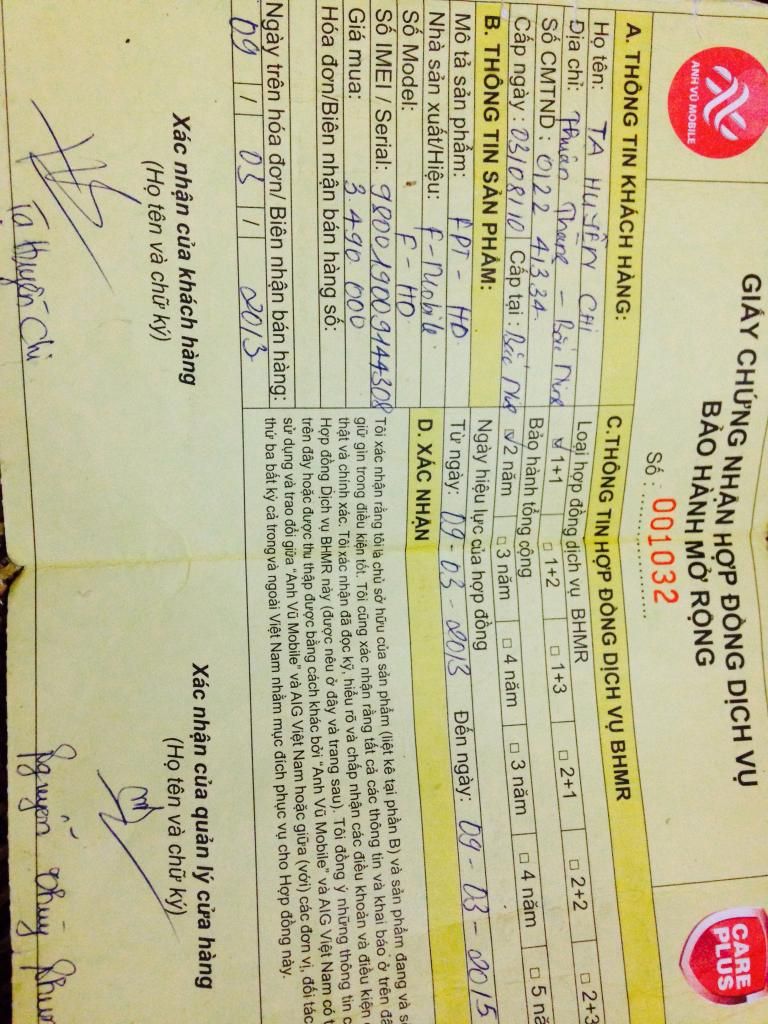 ANH VŨ MOBILE
GIẤY CHỨNG NHẬN HỢP ĐỒNG DỊCH VỤ
BẢO HÀNH MỞ RỘNG
Số : 001032
CARE
PLUS
A. THÔNG TIN KHÁCH HÀNG:
Họ tên: TA HUYỀN CHI
Địa chỉ: Thuận Thành - Bắc Ninh
Số CMTND: 0122 41334
Cấp ngày: 03/08/10 Cấp tại: Bắc Ninh
B. THÔNG TIN SẢN PHẨM:
Mô tả sản phẩm: FPT - HD
Nhà sản xuất/Hiệu: F-Mobile
Số Model: F - HD
Số IMEI / Serial: 980019009144308
Giá mua: 3 490 000
Hóa đơn/Biên nhận bán hàng số:
Ngày trên hóa đơn/ Biên nhận bán hàng:
09 / 03 / 2013
C.THÔNG TIN HỢP ĐỒNG DỊCH VỤ BHMR
Loại hợp đồng dịch vụ BHMR
☑ 1+1 □ 1+2 □ 1+3 □ 2+1 □ 2+2 □ 2+3
Bảo hành tổng cộng
☑ 2 năm □ 3 năm □ 4 năm □ 3 năm □ 4 năm □ 5 nă
Ngày hiệu lực của hợp đồng
Từ ngày: 09 - 03 - 2013 Đến ngày: 09 - 03 - 2015
D. XÁC NHẬN
Tôi xác nhận rằng tôi là chủ sở hữu của sản phẩm (liệt kê tại phần B) và sản phẩm đang và
giữ gìn trong điều kiện tốt. Tôi cũng xác nhận rằng tất cả các thông tin và khai báo ở trên
thật và chính xác. Tôi xác nhận đã đọc kỹ, hiểu rõ và chấp nhận các điều khoản và điều kiện
Hợp đồng Dịch vụ BHMR này (được nêu ở đây và trang sau). Tôi đồng ý những thông tin
trên đây hoặc được thu thập được bằng cách khác bởi "Anh Vũ Mobile" và AIG Việt Nam có
sử dụng và trao đổi giữa "Anh Vũ Mobile" và AIG Việt Nam hoặc giữa (với) các đơn vị, đối tác
thứ ba bất kỳ cả trong và ngoài Việt Nam nhằm mục đích phục vụ cho Hợp đồng này.
Xác nhận của khách hàng
(Họ tên và chữ ký)
Ta Huyền Chi
Xác nhận của quản lý cửa hàng
(Họ tên và chữ ký)
Nguyễn Thùy